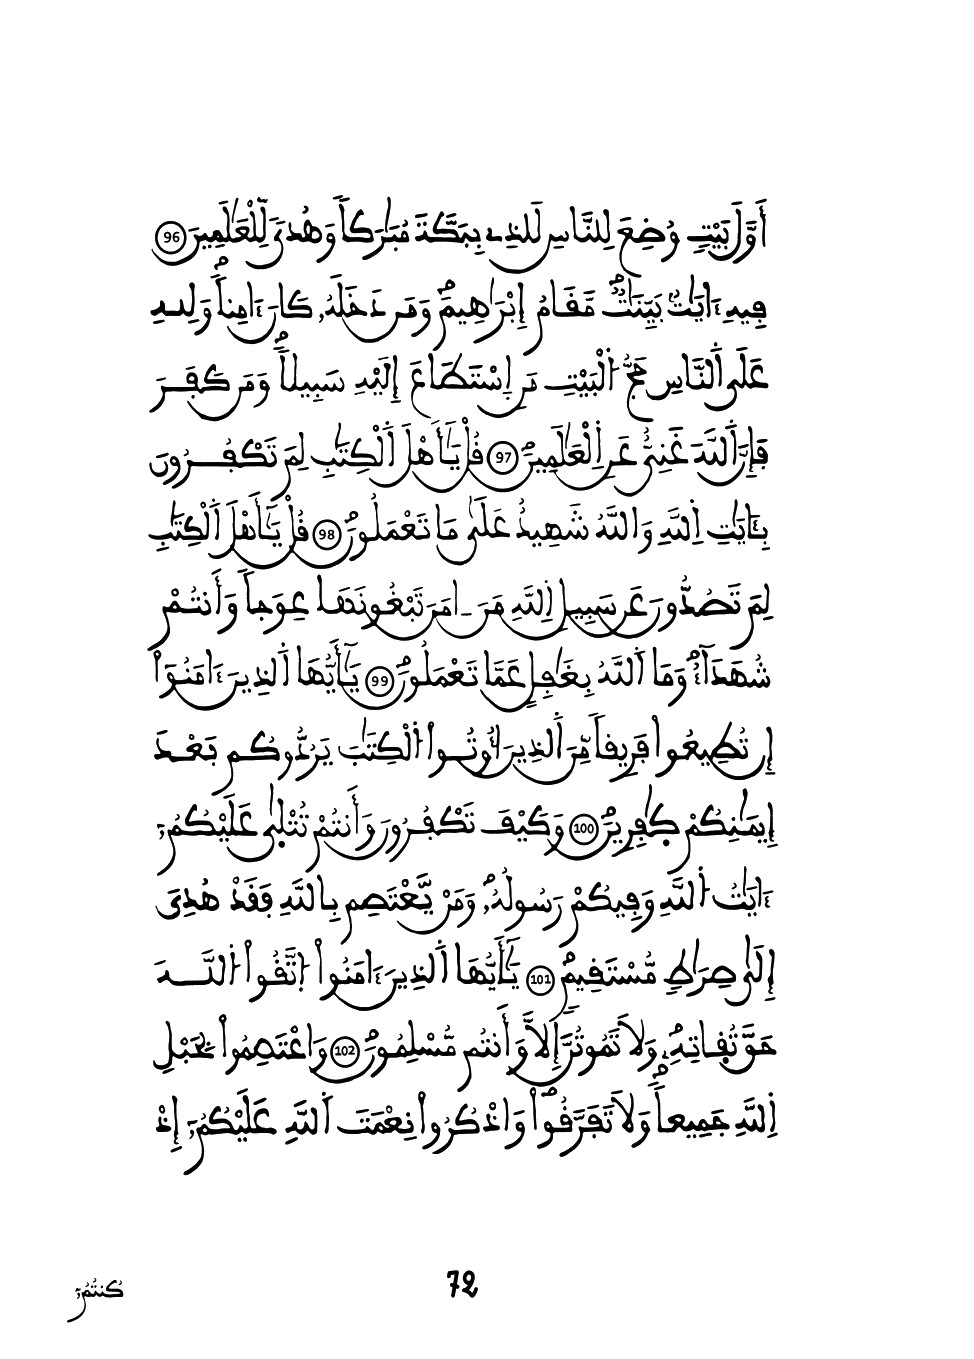 أَوَّلَ بَيْتٍ وُضِعَ لِلنَّاسِ لَلذِے بِبَكَّةَ مُبَٰرَكاٗ وَهُدىٗ لِّلْعَٰلَمِينَ 96
فِيهِ ءَايَٰتُۢ بَيِّنَٰتٞ مَّقَامُ إِبْرَٰهِيمَۖ وَمَن دَخَلَهُۥ كَانَ ءَامِناٗۖ وَلِلهِ
عَلَي اَ۬لنَّاسِ حَجُّ اُ۬لْبَيْتِ مَنِ اِ۪سْتَطَاعَ إِلَيْهِ سَبِيلاٗۖ وَمَن كَفَرَ
فَإِنَّ اَ۬للَّهَ غَنِيٌّ عَنِ اِ۬لْعَٰلَمِينَۖ 97 قُلْ يَٰٓأَهْلَ اَ۬لْكِتَٰبِ لِمَ تَكْفُرُونَ
بِـَٔايَٰتِ اِ۬للَّهِ وَاللَّهُ شَهِيدٌ عَلَىٰ مَا تَعْمَلُونَۖ 98 قُلْ يَٰٓأَهْلَ اَ۬لْكِتَٰبِ
لِمَ تَصُدُّونَ عَن سَبِيلِ اِ۬للَّهِ مَنَ اٰمَنَ تَبْغُونَهَا عِوَجاٗ وَأَنتُمْ
شُهَدَآءُۖ وَمَا اَ۬للَّهُ بِغَٰفِلٍ عَمَّا تَعْمَلُونَۖ 99 يَٰٓأَيُّهَا اَ۬لذِينَ ءَامَنُوٓاْ
إِن تُطِيعُواْ فَرِيقاٗ مِّنَ اَ۬لذِينَ أُوتُواْ اُ۬لْكِتَٰبَ يَرُدُّوكُم بَعْدَ
إِيمَٰنِكُمْ كَٰفِرِينَۖ 100 وَكَيْفَ تَكْفُرُونَ وَأَنتُمْ تُتْلَىٰ عَلَيْكُمُۥٓ
ءَايَٰتُ اُ۬للَّهِ وَفِيكُمْ رَسُولُهُۥۖ وَمَنْ يَّعْتَصِم بِاللَّهِ فَقَدْ هُدِيَ
إِلَىٰ صِرَٰطٖ مُّسْتَقِيمٖۖ 101 يَٰٓأَيُّهَا اَ۬لذِينَ ءَامَنُواْ اُ۪تَّقُواْ اُ۬للَّهَ
حَقَّ تُقَاتِهِۦۖ وَلَا تَمُوتُنَّ إِلَّا وَأَنتُم مُّسْلِمُونَۖ 102 وَاعْتَصِمُواْ بِحَبْلِ
اِ۬للَّهِ جَمِيعاٗۖ وَلَا تَفَرَّقُواْۖ وَاذْكُرُواْ نِعْمَتَ اَ۬للَّهِ عَلَيْكُمُۥٓ إِذْ
كُنتُمُۥٓ
72